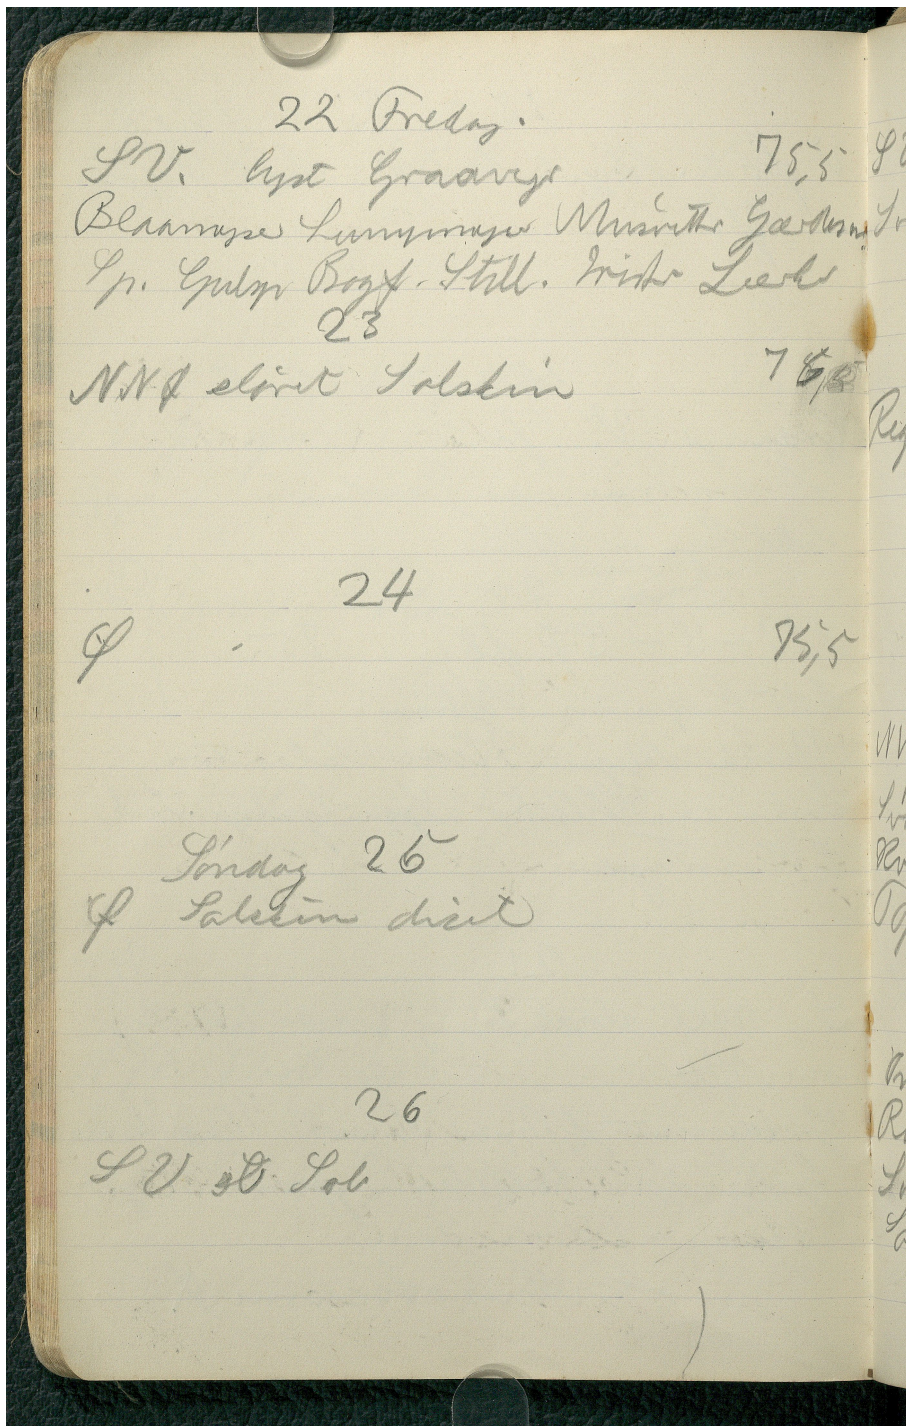 22 Fredag.
SV. lyst Graavejr 75,5
Blaamejse Sumpmejse Musvitter Gærdesm.
Sp. Gulsp Bogf. Still. Irisker Lærke
23
NNØ sløret Solskin 76,5
24
Ø 75,5
Søndag 25
Ø Solskin diset
26
SV Sol